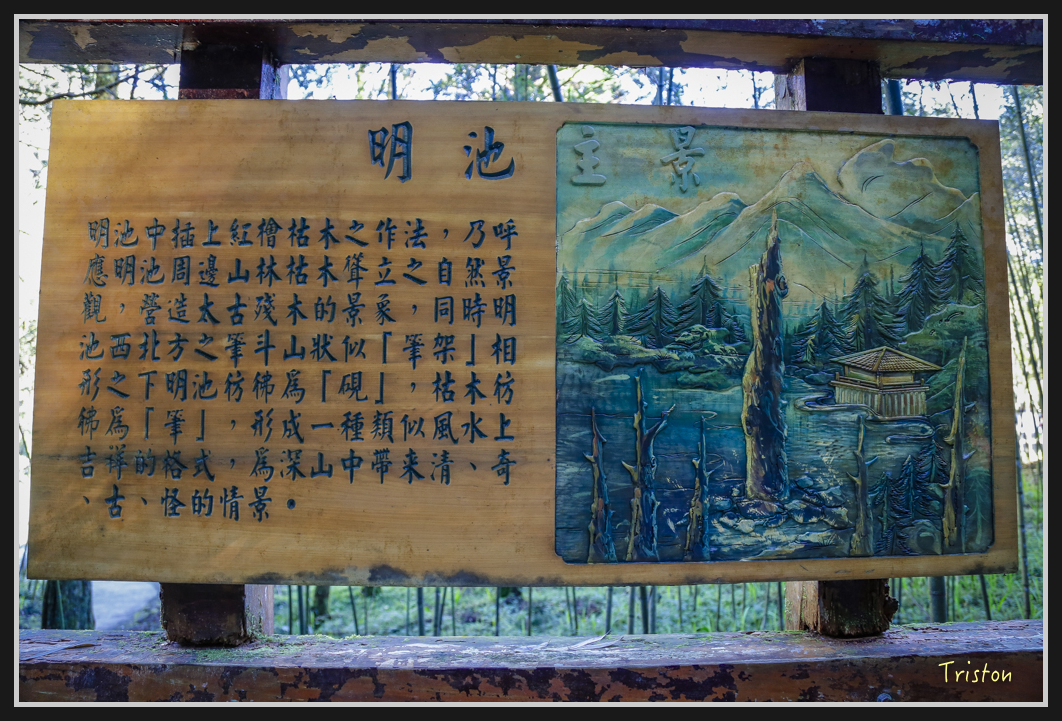 明池主景
明池中插上紅檜枯木之作法，乃呼
應明池周邊山林枯木聳立之自然景
觀，營造太古殘木的景象，同時明
池西北方之筆斗山狀似「筆架」相
形之下明池彷彿為「硯」，枯木彷
彿為「筆」，形成一種類似風水上
吉祥的格式，為深山中帶来清、奇
、古、怪的情景。
Triston